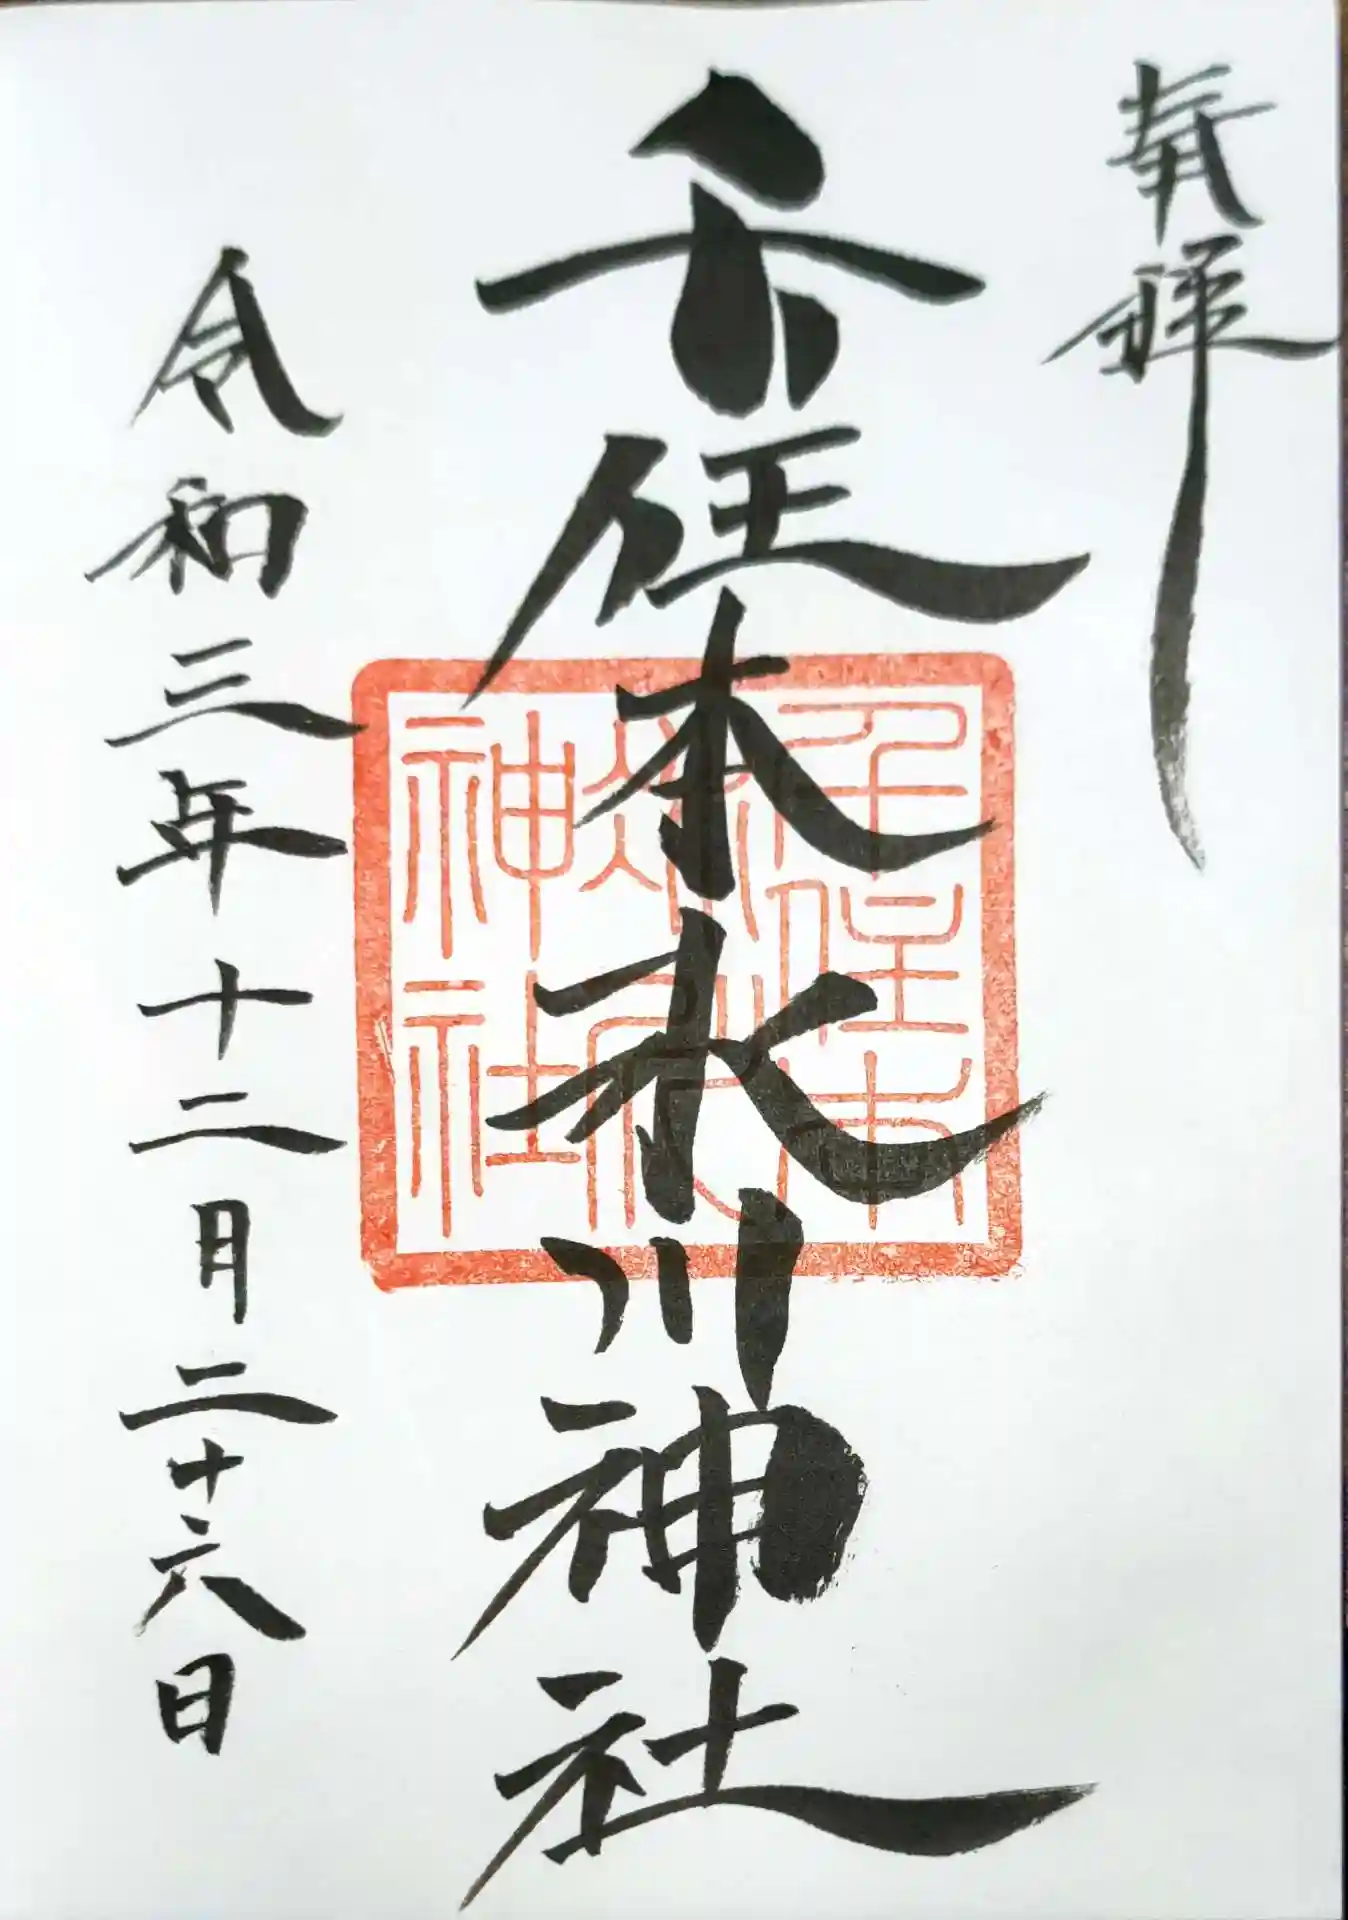 奉拝
千住本氷川神社
令和三年十二月二十六日
千住本
氷川
神社